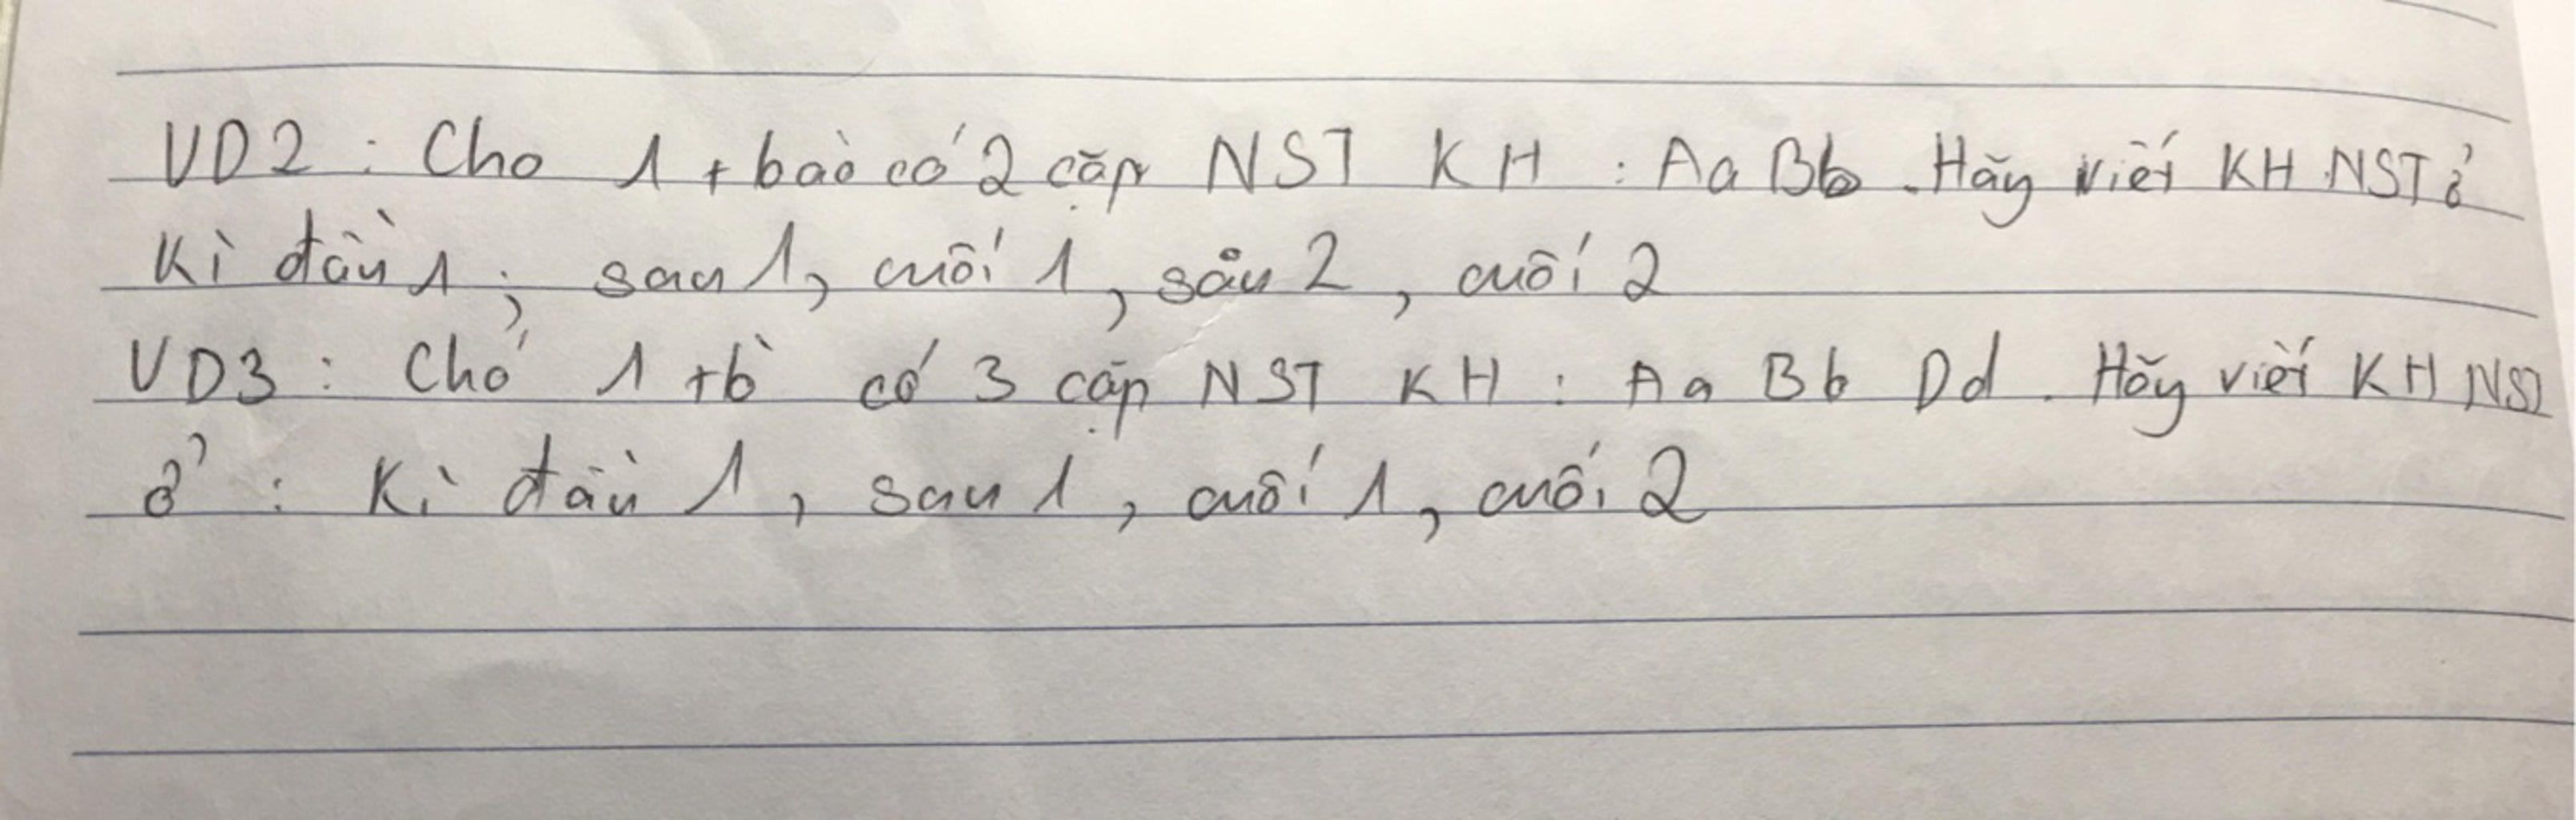 VD2 : Cho 1 tbào có 2 cặp NST KH : Aa Bb . Hãy viết KH NST ở
Kì đầu 1 ; sau 1, cuối 1, sau 2, cuối 2
VD3 : Cho 1 tb có 3 cặp NST KH : Aa Bb Dd . Hãy viết KH NST
ở : Kì đầu 1, sau 1, cuối 1, cuối 2